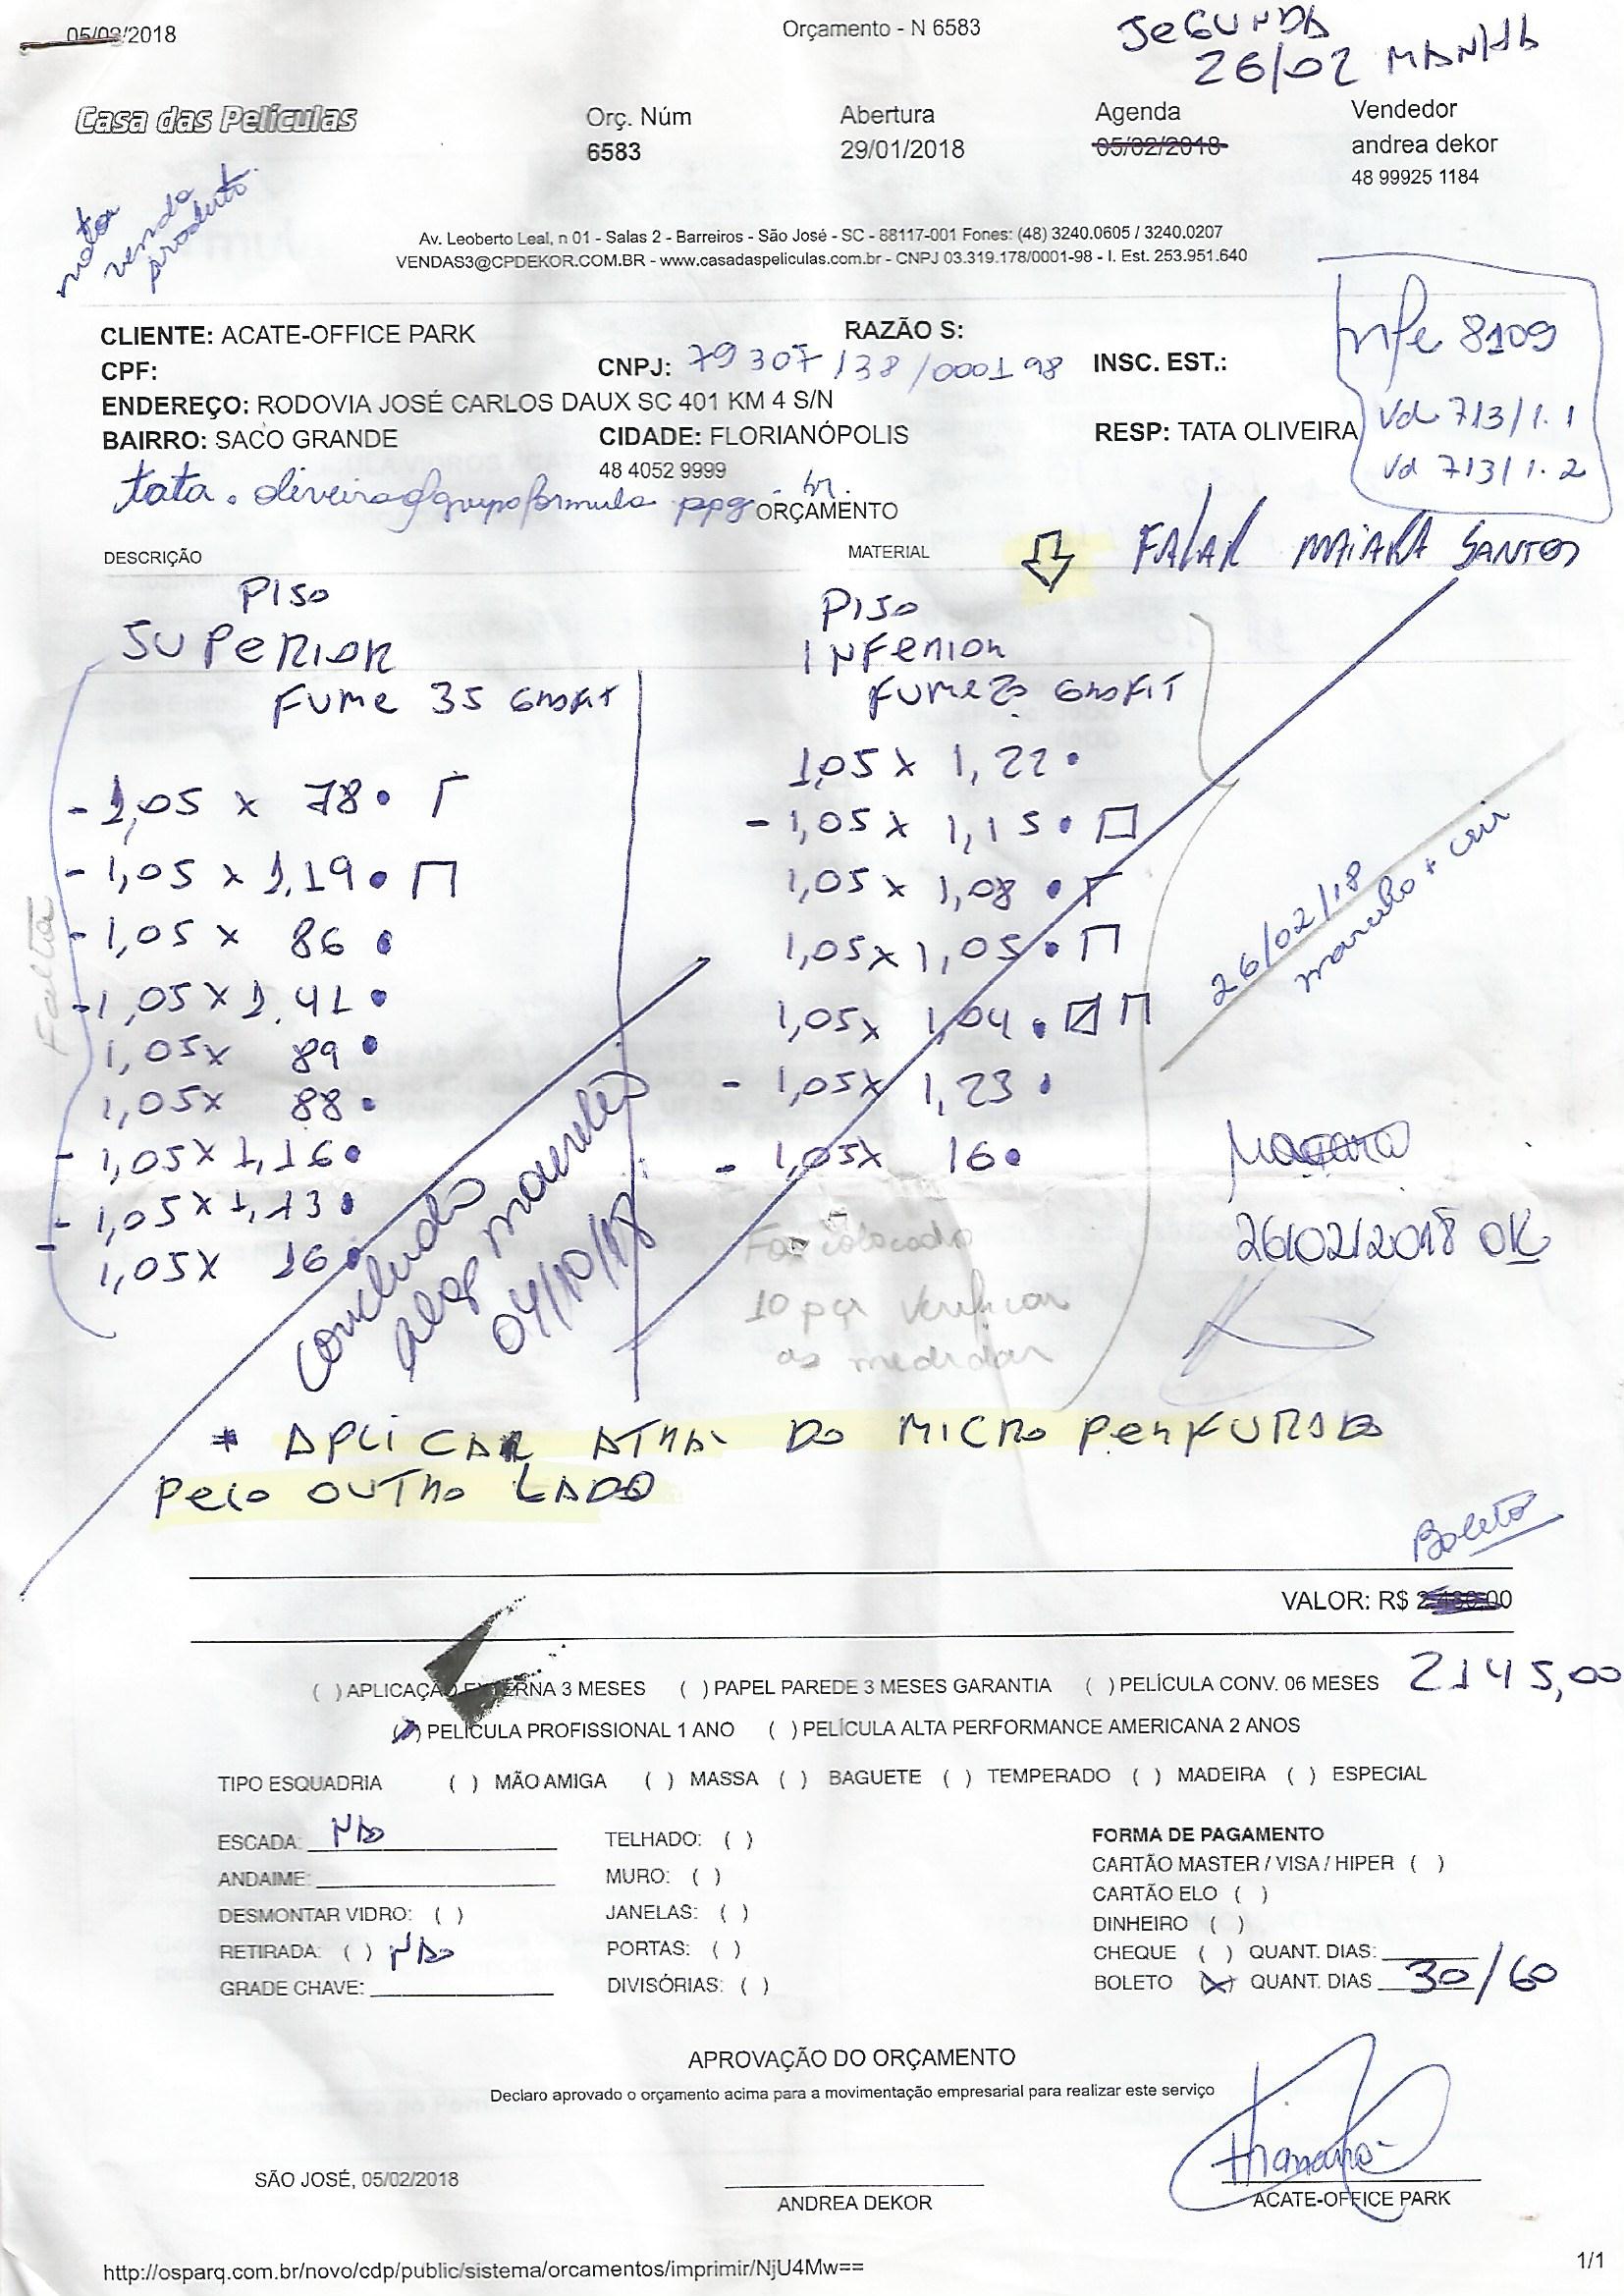 05/02/2018
Orçamento - N 6583
SEGUNDA
26/02 MANHA
Casa das Películas
Orç. Núm
6583
Abertura
29/01/2018
Agenda
05/02/2018
Vendedor
andrea dekor
48 99925 1184
nota
venda
produto.
Av. Leoberto Leal, n 01 - Salas 2 - Barreiros - São José - SC - 88117-001 Fones: (48) 3240.0605 / 3240.0207
VENDAS3@CPDEKOR.COM.BR - www.casadaspeliculas.com.br - CNPJ 03.319.178/0001-98 - I. Est. 253.951.640
nfe 8109
Vd 713/1.1
Vd 713/1.2
CLIENTE: ACATE-OFFICE PARK RAZÃO S:
CPF: CNPJ: 79 307 /138 /0001 98 INSC. EST.:
ENDEREÇO: RODOVIA JOSÉ CARLOS DAUX SC 401 KM 4 S/N
BAIRRO: SACO GRANDE CIDADE: FLORIANÓPOLIS RESP: TATA OLIVEIRA
48 4052 9999
tata.oliveira@grupoformula ppg.br.
ORÇAMENTO
FALAR MAIARA SANTOS
DESCRIÇÃO MATERIAL
PISO
SUPERIOR
FUME 35 GRAFIT
- 1,05 x 78
- 1,05 x 1,19
- 1,05 x 86
- 1,05 x 1,41
1,05x 89
1,05x 88
- 1,05x 1,16
- 1,05x 1,13
- 1,05x 16
Falta
PISO
INFERIOR
FUME 20 GRAFIT
1,05x 1,22
- 1,05x 1,15
1,05x 1,08
1,05x 1,05
1,05x 1,04
- 1,05x 1,23
- 1,05x 16
26/02/18
concluido
04/10/18
Foi colocado
10 pçs verificar
as medidas
26/02/2018 OK
* APLICAR ATRAS DO MICRO PERFURADO
PELO OUTRO LADO
Boleto
VALOR: R$ 2.480.00
2145,00
( ) APLICAÇÃO EXTERNA 3 MESES ( ) PAPEL PAREDE 3 MESES GARANTIA ( ) PELÍCULA CONV. 06 MESES
(x) PELÍCULA PROFISSIONAL 1 ANO ( ) PELÍCULA ALTA PERFORMANCE AMERICANA 2 ANOS
TIPO ESQUADRIA ( ) MÃO AMIGA ( ) MASSA ( ) BAGUETE ( ) TEMPERADO ( ) MADEIRA ( ) ESPECIAL
ESCADA: NÃO
ANDAIME:
DESMONTAR VIDRO: ( )
RETIRADA: ( ) NÃO
GRADE CHAVE:
TELHADO: ( )
MURO: ( )
JANELAS: ( )
PORTAS: ( )
DIVISÓRIAS: ( )
FORMA DE PAGAMENTO
CARTÃO MASTER / VISA / HIPER ( )
CARTÃO ELO ( )
DINHEIRO ( )
CHEQUE ( ) QUANT. DIAS:
BOLETO (x) QUANT. DIAS 30/60
APROVAÇÃO DO ORÇAMENTO
Declaro aprovado o orçamento acima para a movimentação empresarial para realizar este serviço
SÃO JOSÉ, 05/02/2018
ANDREA DEKOR
ACATE-OFFICE PARK
http://osparq.com.br/novo/cdp/public/sistema/orcamentos/imprimir/NjU4Mw==
1/1